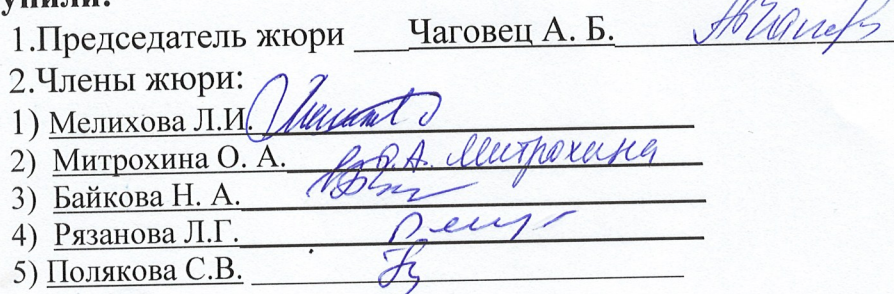 упили:
1.Председатель жюри ___Чаговец А. Б.
2.Члены жюри:
1) Мелихова Л.И.
2) Митрохина О. А. О.А. Митрохина
3) Байкова Н. А.
4) Рязанова Л.Г.
5) Полякова С.В.